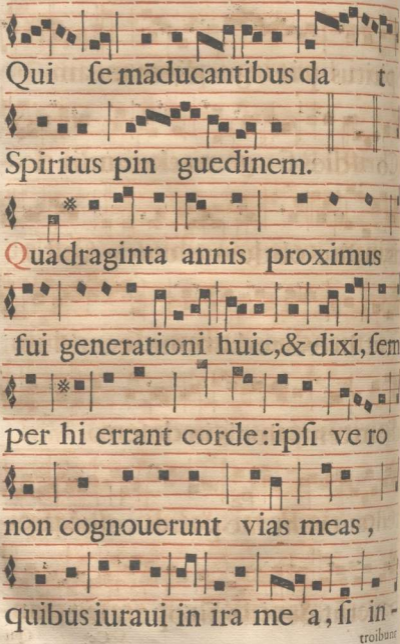 Qui ſe māducantibus da t
Spiritus pin guedinem.
Quadraginta annis proximus
fui generationi huic,& dixi, ſem
per hi errant corde: ipſi ve ro
non cognouerunt vias meas,
quibus iuraui in ira me a, ſi in-
troibunt